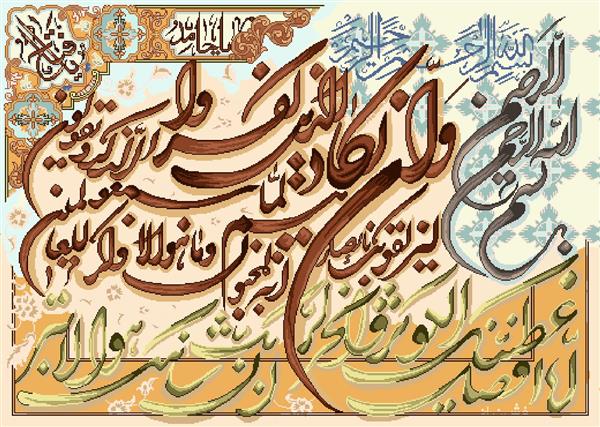 بسم الله الرحمن الرحیم
بسم الله الرحمن الرحیم
وان یکاد الذین کفروا
لیزلقونک بابصارهم لما سمعوا الذکر و یقولون
انه لمجنون وما هو الا ذکر للعالمین
انا اعطیناک الکوثر فصل لربک وانحر ان شانئک هو الابتر